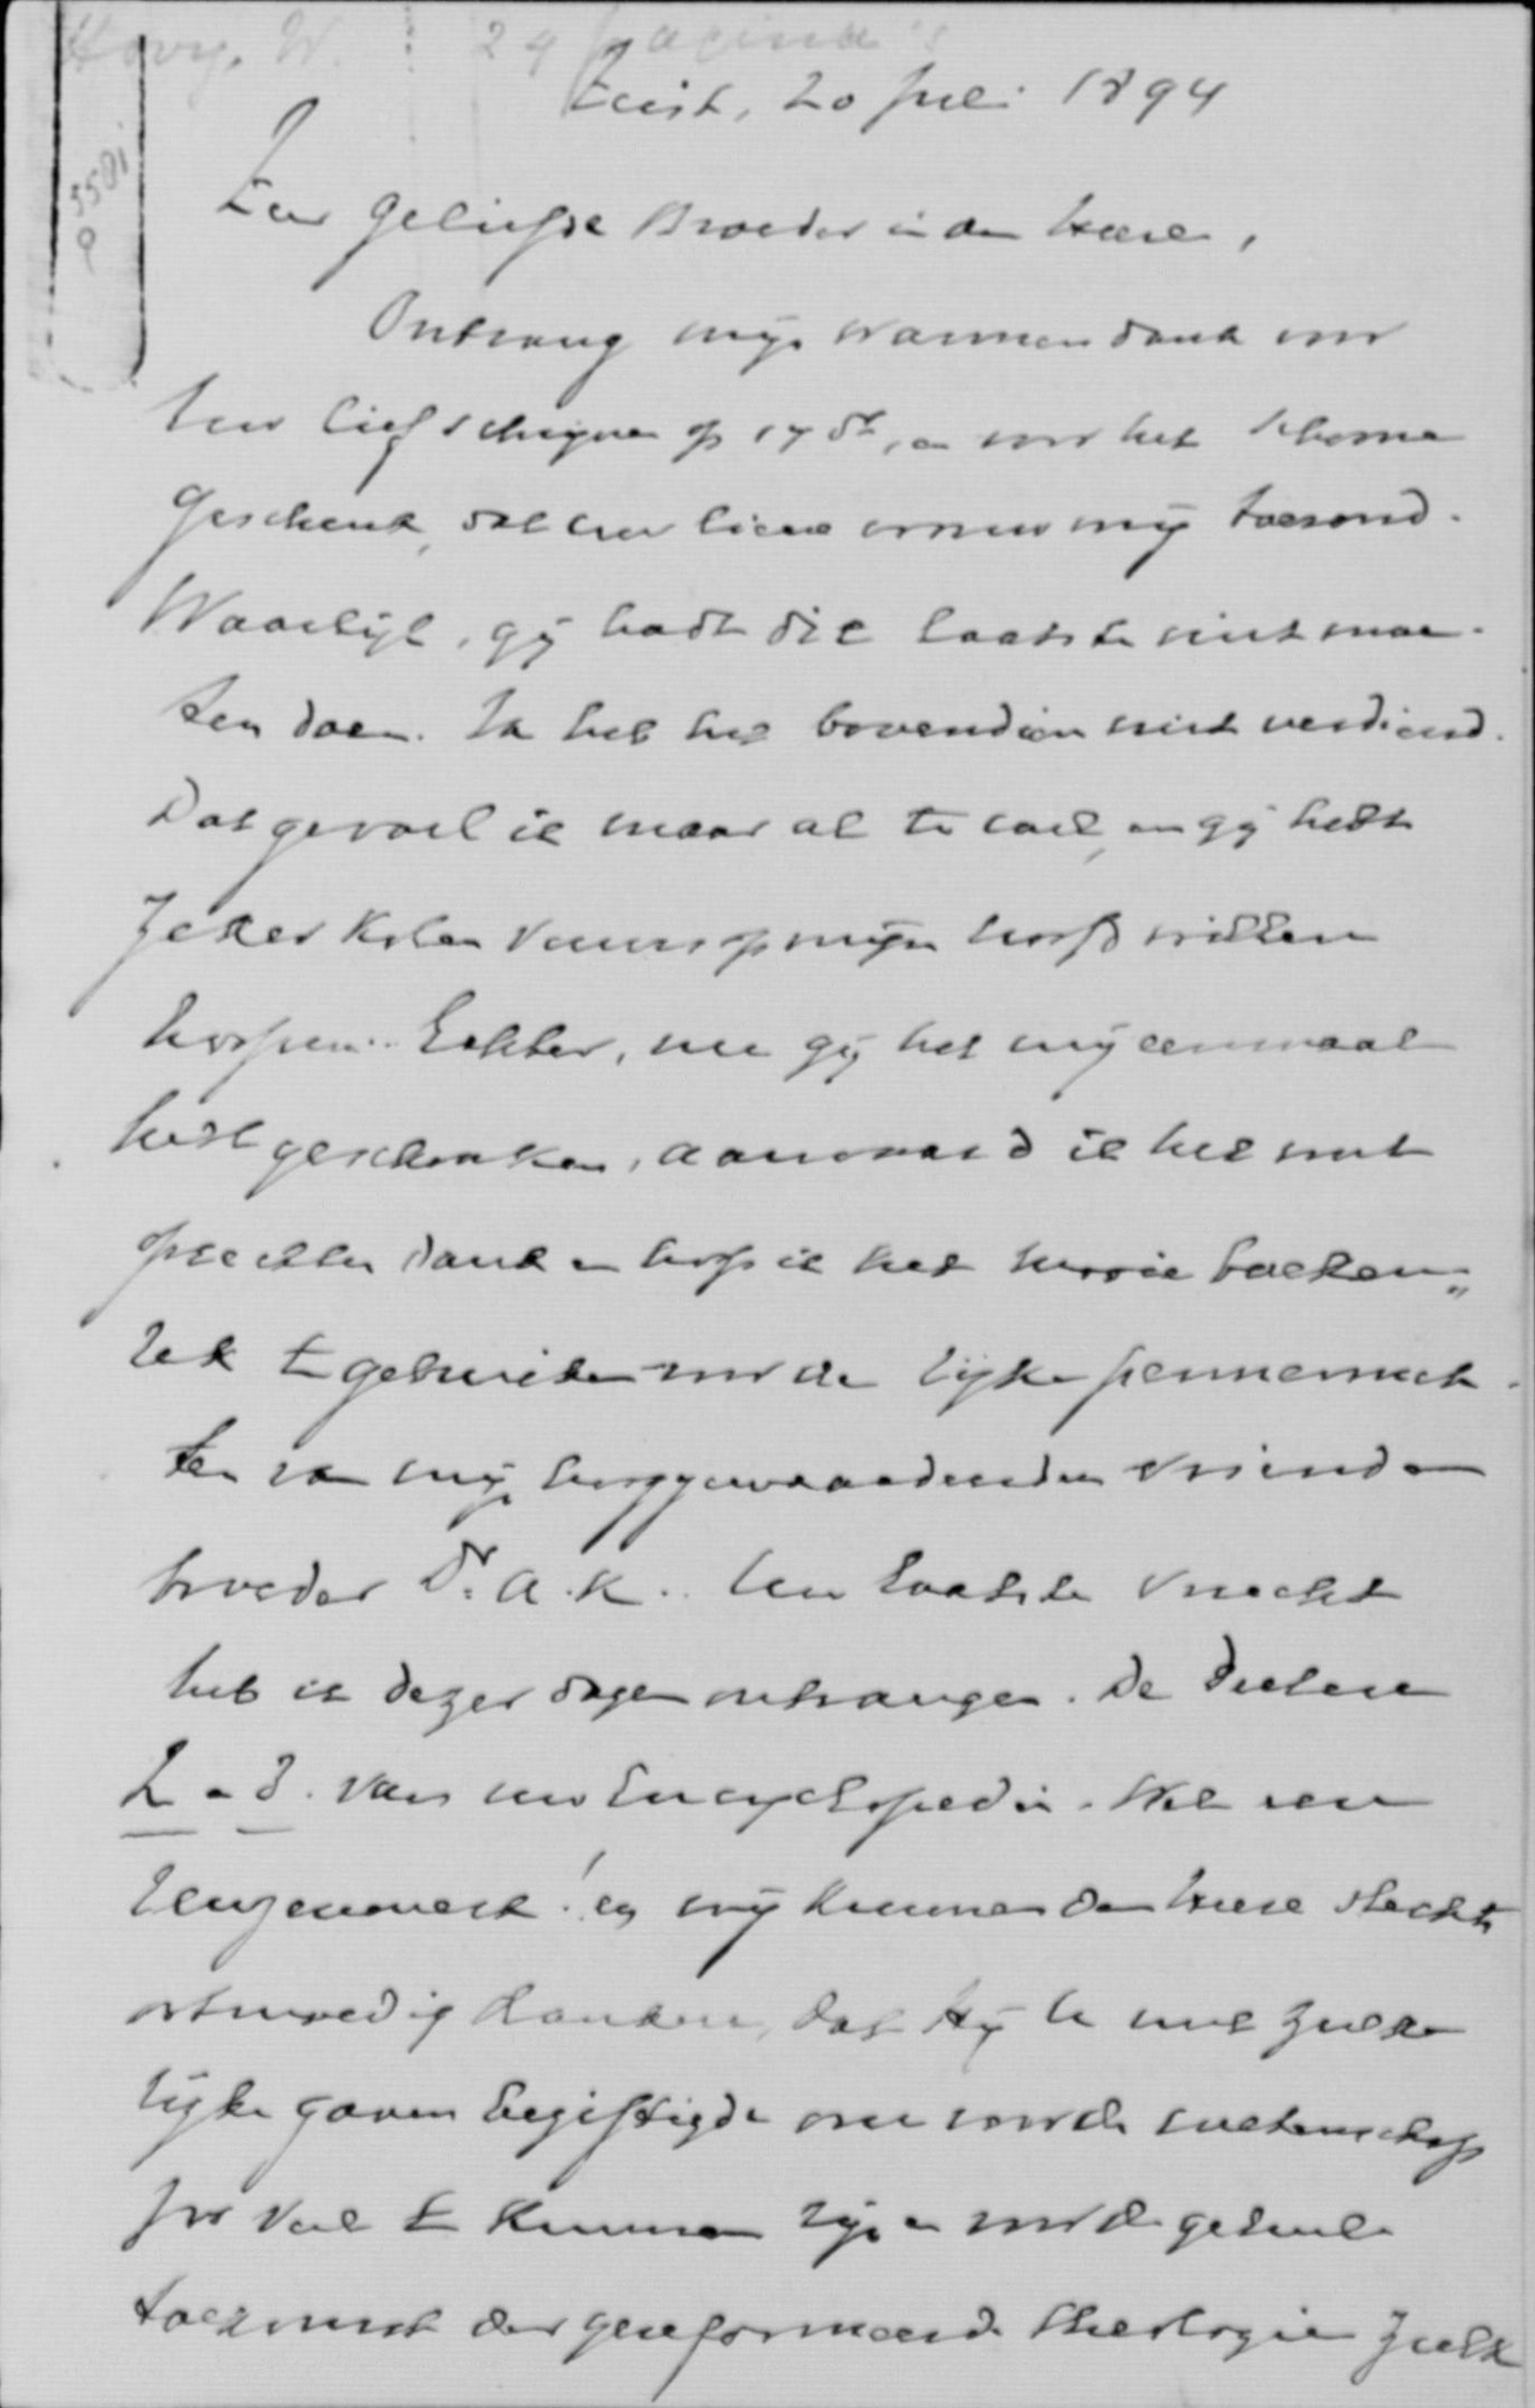 Hovy, W. 24 pagina's
5581
Zeist, 20 Juli 1894
Zeer geliefde Broeder in den Heere,
Ontvang mijn warmen dank voor
Uw lief schrijven op 17 dr, en voor het schoone
geschenk, dat Uw lieve vrouw mij toezond.
Waarlijk, gij hadt dit laatste niet moe-
ten doen. Ik heb het bovendien niet verdiend.
Dat gevoel ik maar al te wel, en gij hebt
zeker kolen vuurs op mijn hoofd willen
hoopen. Echter, nu gij het mij eenmaal
hebt geschonken, aanvaard ik het met
oprechten dank en hoop ik het boeken-
rek te gebruiken voor de rijke pennevruch-
ten van mijn hooggewaardeerden vriend en
broeder Dr. A. K. Uw laatste vrucht
heb ik dezer dagen ontvangen. De deelen
2 en 3 van uw Encyclopedie. Wel een
reuzenwerk! en wij kunnen den Heere slechts
ootmoedig danken, dat Hij U met zulke
rijke gaven begiftigde om voor de wetenschap
pro veel te kunnen zijn en voor de geheele
toekomst der gereformeerde theologie zulk